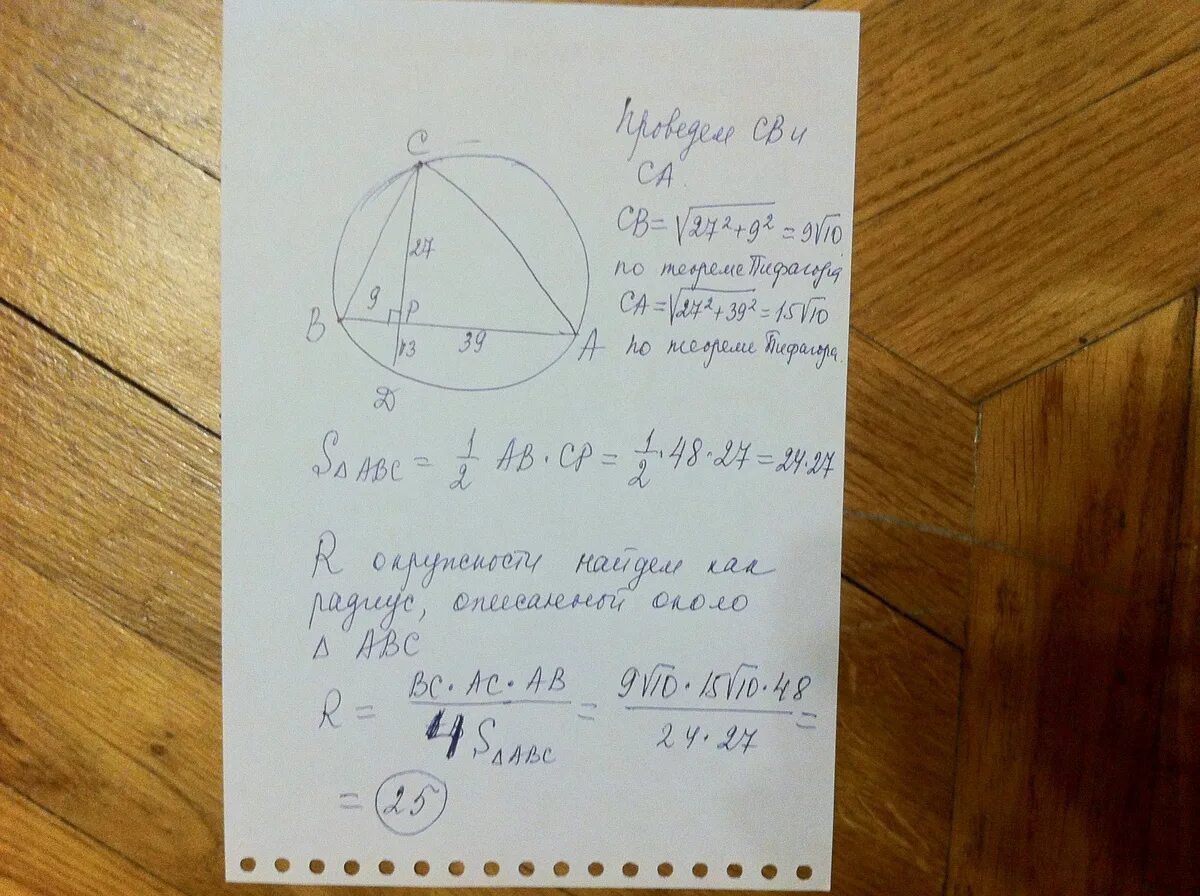 Проведем CB и
CA.
CB = √27²+9² = 9√10
по теореме Пифагора
CA = √27²+39² = 15√10
по теореме Пифагора.
C
27
9
P
B
13
39
A
D
S△ABC = 1/2 AB · CP = 1/2 · 48 · 27 = 24·27
R окружности найдем как
радиус, описанной около
△ ABC
R = BC · AC · AB / 4 S△ABC = 9√10 · 15√10 · 48 / 24 · 27 =
= 25